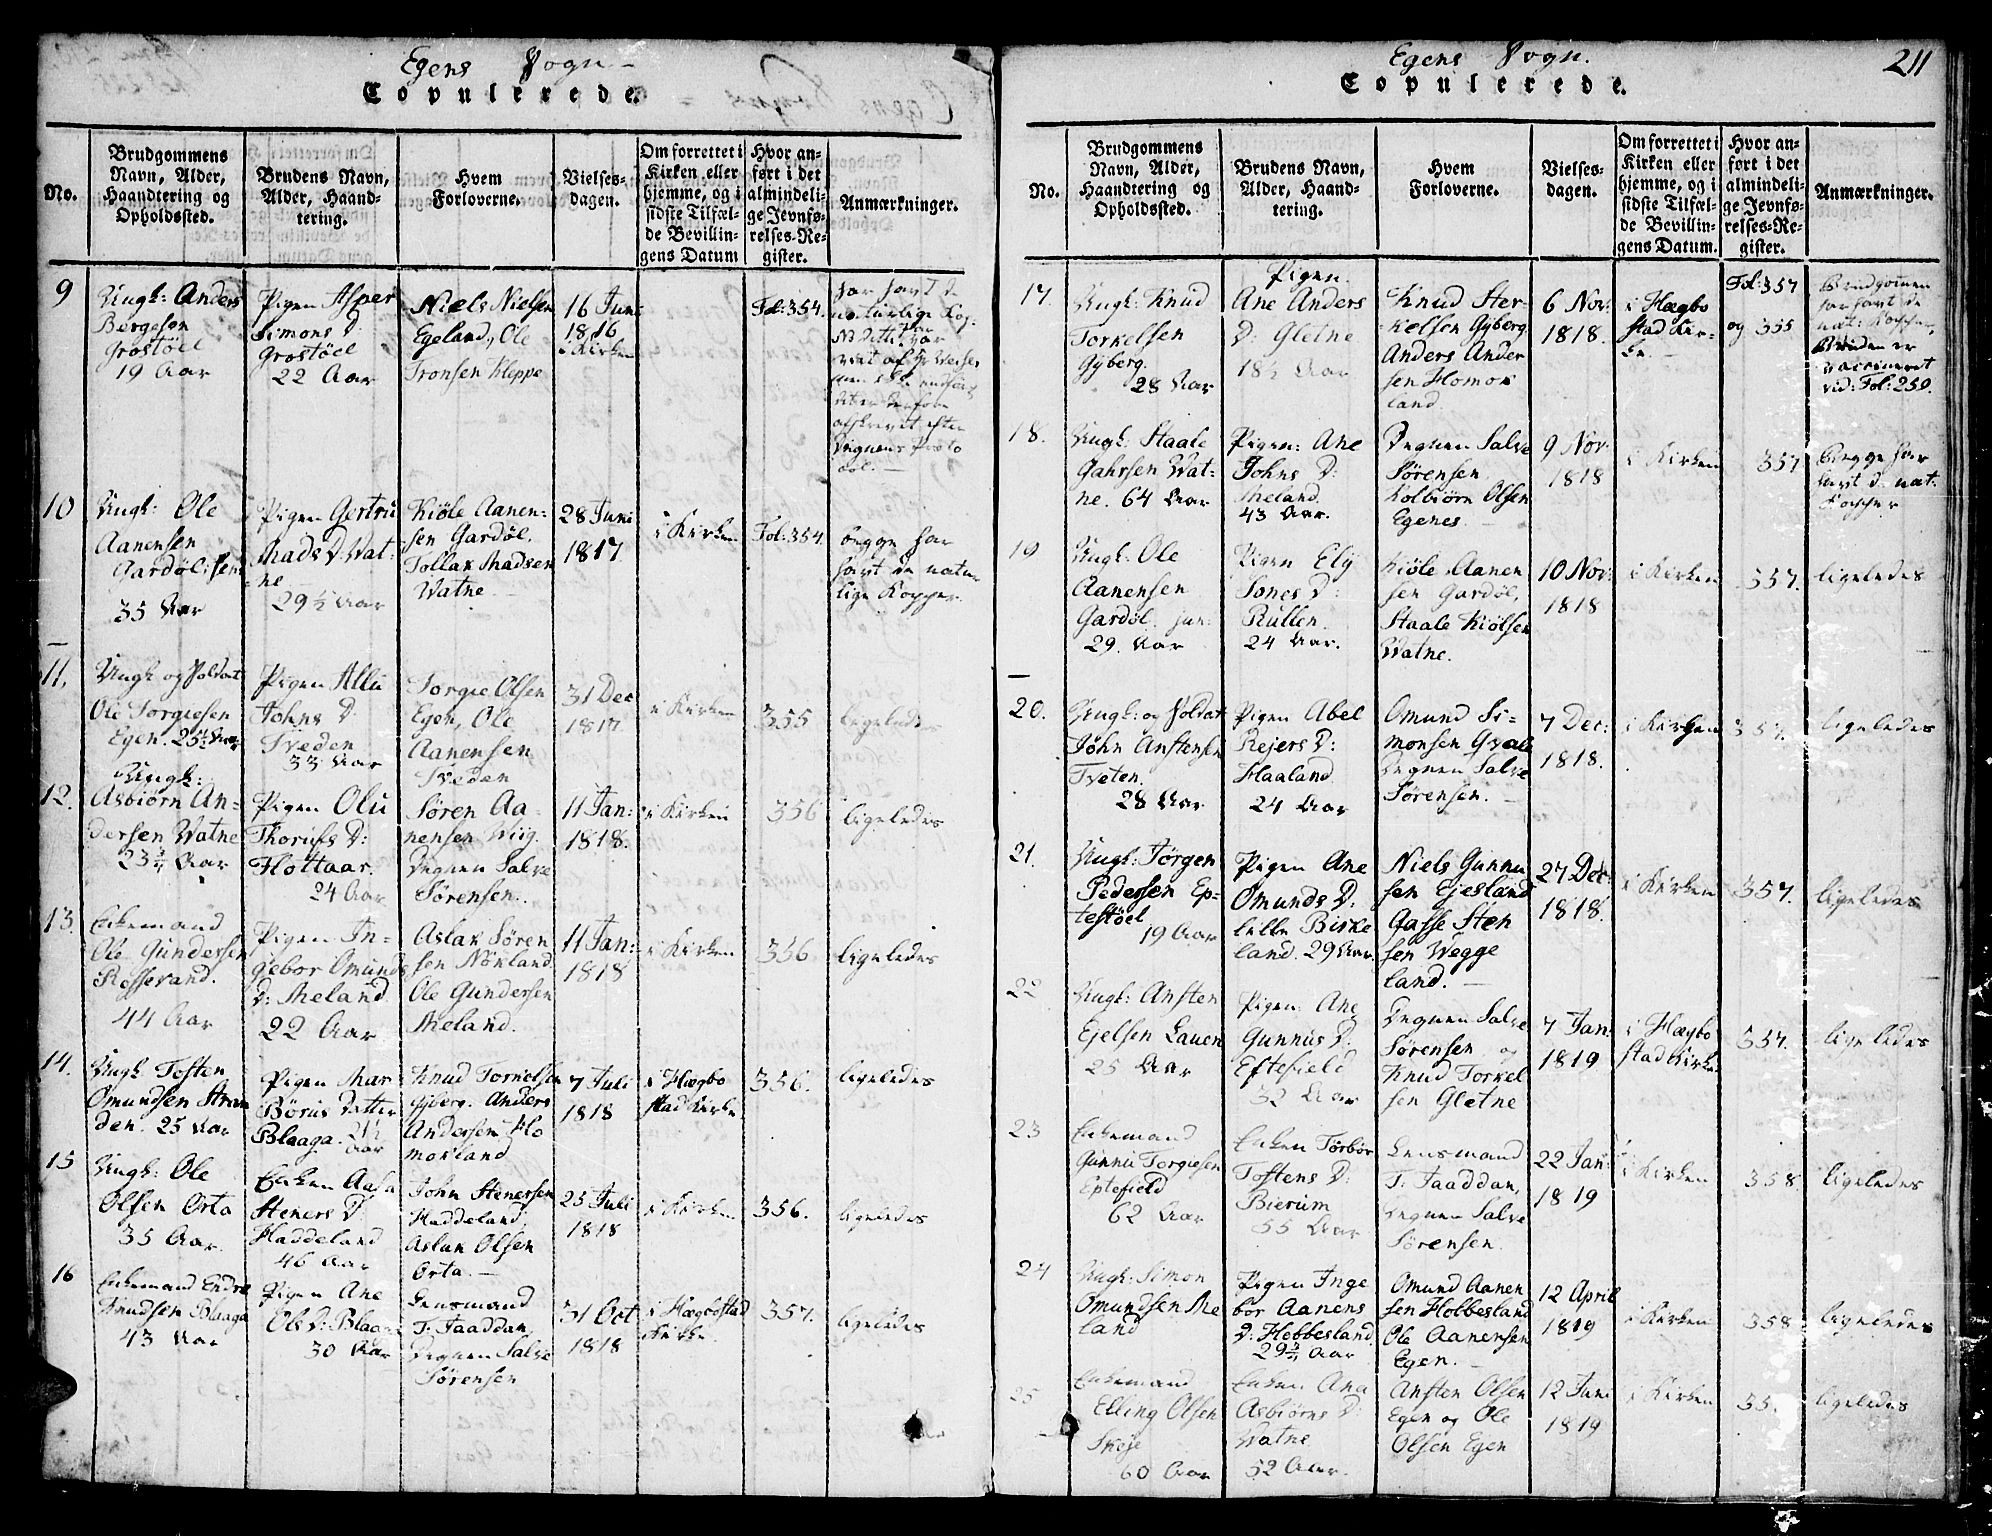 Egens Sogn
Copulerede.
No.
Brudgommens Navn, Alder, Haandtering og Opholdssted.
Brudens Navn, Alder, Haandtering.
Hvem Forloverne.
Vielses-dagen.
Om forrettet i Kirken eller hjemme, og i sidste Tilfælde Bevillingens Datum
Hvor anført i det almindelige Jevnførelses-Register.
Anmærkninger.
9
Ungk: Anders
Bergesen
Grostöel
19 Aar
Pigen Asper
Simons D
Grostöel
22 Aar
Niels Nielsen
Egeland, Ole
Tronsen Kleppe
16 Juni
1816
i Kirken
Fol: 354.
har havt d
naturlige Kop
10
Ungk: Ole
Aanensen
Gardöl: sen:
35 Aar
Pigen Gertru
Mads D. Wat-
ne
29½ Aar
Kiöle Aanen-
sen Gardöl,
Tollak Madsen
Watne.
28 Juni
1817
i Kirken
Fol: 354.
begge har
havt de natur
lige Kopper.
11.
Ungk og Soldat
Ole Torgiesen
Egen. 25½ Aar
Pigen Allu
Johns D
Tveden
33 Aar
Torgie Olsen
Egen, Ole
Aanensen
Tveden
31 Dec
1817
i Kirken
355
ligeledes
12.
Ungk:
Asbiörn An-
dersen Watne
23¾ Aar
Pigen Olu
Thorius D:
Flottaar.
24 Aar
Sören Aa-
nensen Wiig.
Degnen Salve
Sörensen.
11 Jan:
1818.
i Kirken
356
ligeledes
13.
Enkemand
Ole Gundersen
Rossevand.
44 Aar
Pigen In-
gebor Omunds
D: Meland
22 Aar
Aslak Sören
sen Nökland
Ole Gundersen
Meland.
11 Jan:
1818
i Kirken
356
ligeledes
14.
Ungk Tosten
Omundsen Stran
den. 25 Aar
Pigen Mar
Börus Datter
Blaaga. 21½
Aar
Knud Torkelsen
Gyberg. Anders
Andersen Ho
mokland
7 Juli
1818
i Hægbo
stad Kirke
356.
ligeledes
15
Ungk: Ole
Olsen Orta
35 Aar.
Enken Aasa
Steners D.
Haddeland
46 Aar
John Stenersen
Haddeland,
Aslak Olsen
Orta.
25 Juli
1818
i Kirken
356.
ligeledes
16
Enkemand Endre
Knudsen Blaaga
43 Aar
Pigen Ane
Ols D: Blaaga
30 Aar
Lensmand
T: Faaddan,
Degnen Salve
Sörensen
31 Oct
1818
i Hægbostad
Kirke.
357.
ligeledes
Egens Sogn.
211
Copulerede.
No.
Brudgommens Navn, Alder, Haandtering og Opholdssted.
Brudens Navn, Alder, Haandtering.
Hvem Forloverne.
Vielses-dagen.
Om forrettet i Kirken eller hjemme, og i sidste Tilfælde Bevillingens Datum.
Hvor anført i det almindelige Jevnførelses-Register.
Anmærkninger.
17.
Ungk: Knud
Torkelsen
Gyberg.
28 Aar
Pigen.
Ane Anders
D: Gletne
18½ Aar
Knud Ster-
kelsen Gyberg
Anders Ander
sen Homok
land.
6 Nov:
1818.
i Hægbo
stad Kir-
ke.
Fol: 357
og 355
Brudgommen
har havt de
nat: Kopper,
Bruden er
vaccineret
vid: Fol: 259.
18.
Ungk: Staale
Gahrsen Wat-
ne. 64 Aar
Pigen: Ane
Johns D:
Meland.
43 Aar.
Degnen Salve
Sörensen
Kolbiörn Olsen
Egenes.
9 Nov:
1818
i Kirken
357
Begge har
havt d. nat:
Kopper
19
Ungk: Ole
Aanensen
Gardöl. jun:
29. Aar
Pigen Ely
Jones D:
Rullen.
24 Aar.
Kiöle Aanen
sen Gardöl,
Staale Kiölsen
Watne.
10 Nov:
1818
i Kirken
357.
ligeledes
20.
Ungk: og Soldat
John Anstensen
Tveten.
28 Aar
Pigen Abel
Rejers D:
Haaland
24 Aar
Omund Si-
monsen Qvale
Degnen Salve
Sörensen.
7 Dec:
1818.
i Kirken
357.
ligeledes
21.
Ungk: Jörgen
Pedersen Ep-
testöel
19 Aar
Pigen Ane
Omunds D:
Lille Birke
land. 29 Aar.
Niels Gunnu
sen Ejesland
Gasse Sten
sen Wegge
land.
27 Dec:
1818.
i Kirken
357.
ligeledes
22
Ungk: Ansten
Ejelsen Lauen
25 Aar
Pigen: Ane
Gunnus D.
Eftefield
32 Aar
Degnen Salve
Sörensen og
Knud Torkel
sen Gletne
7 Jan:
1819
i Hægbo
stad Kirke
357.
ligeledes
23
Enkemand
Gunnu Torgiesen
Eptefield
62 Aar
Enken Törbör
Tostens D:
Bierum
55 Aar
Lensmand
T: Faaddan,
Degnen Salve
Sörensen.
22 Jan:
1819
i Kirken
358.
ligeledes
24
Ungk: Simon
Omundsen Me
land
Pigen Inge
bor Aanens
D: Hobbesland
29¾ Aar
Omund Aanen
sen Hobbesland
Ole Aanensen
Egen.
12 April
1819
i Kirken
358
ligeledes
25
Enkemand
Elling Olsen
Skeje
60 Aar
Enken Ana
Asbiörns D:
Watne
52 Aar.
Ansten Olsen
Egen og Ole
Olsen Egen
12 Juni
1819
i Kirken
35.
ligeledes